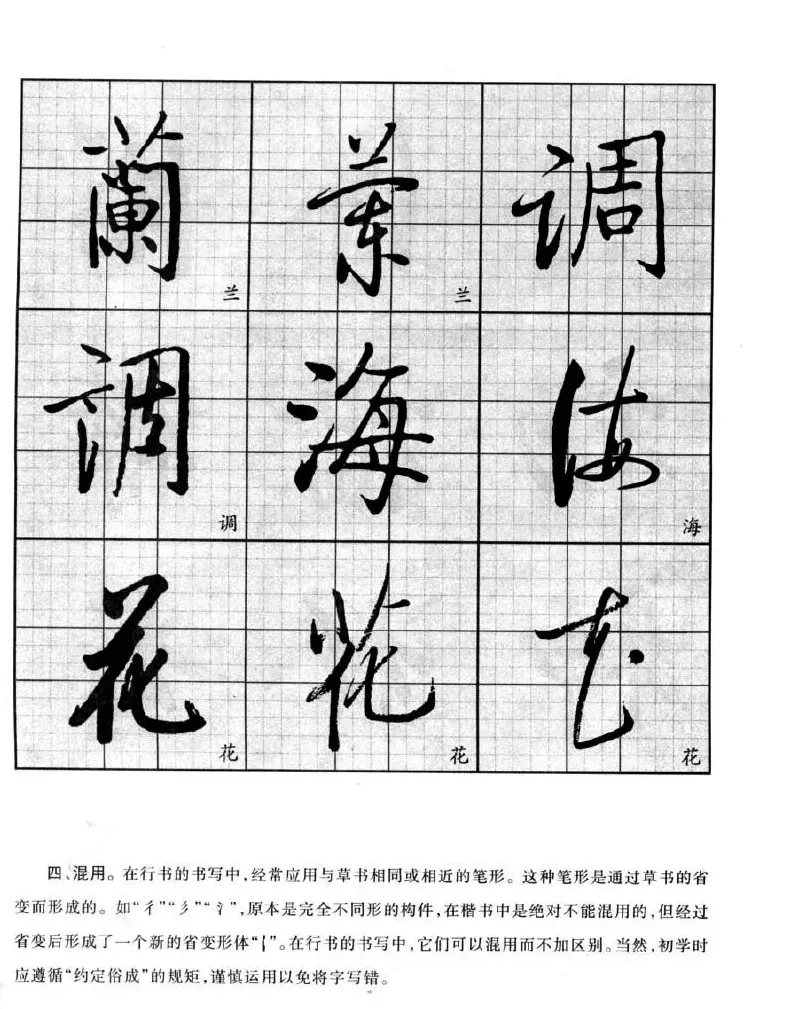 蘭 蘭 调
兰 兰
調 海 海
调 海
花 花 花
花 花 花
四、混用。在行书的书写中，经常应用与草书相同或相近的笔形。这种笔形是通过草书的省
变而形成的。如“彳”“彡”“氵”，原本是完全不同形的构件，在楷书中是绝对不能混用的，但经过
省变后形成了一个新的省变形体“”。在行书的书写中，它们可以混用而不加区别。当然，初学时
应遵循“约定俗成”的规矩，谨慎运用以免将字写错。